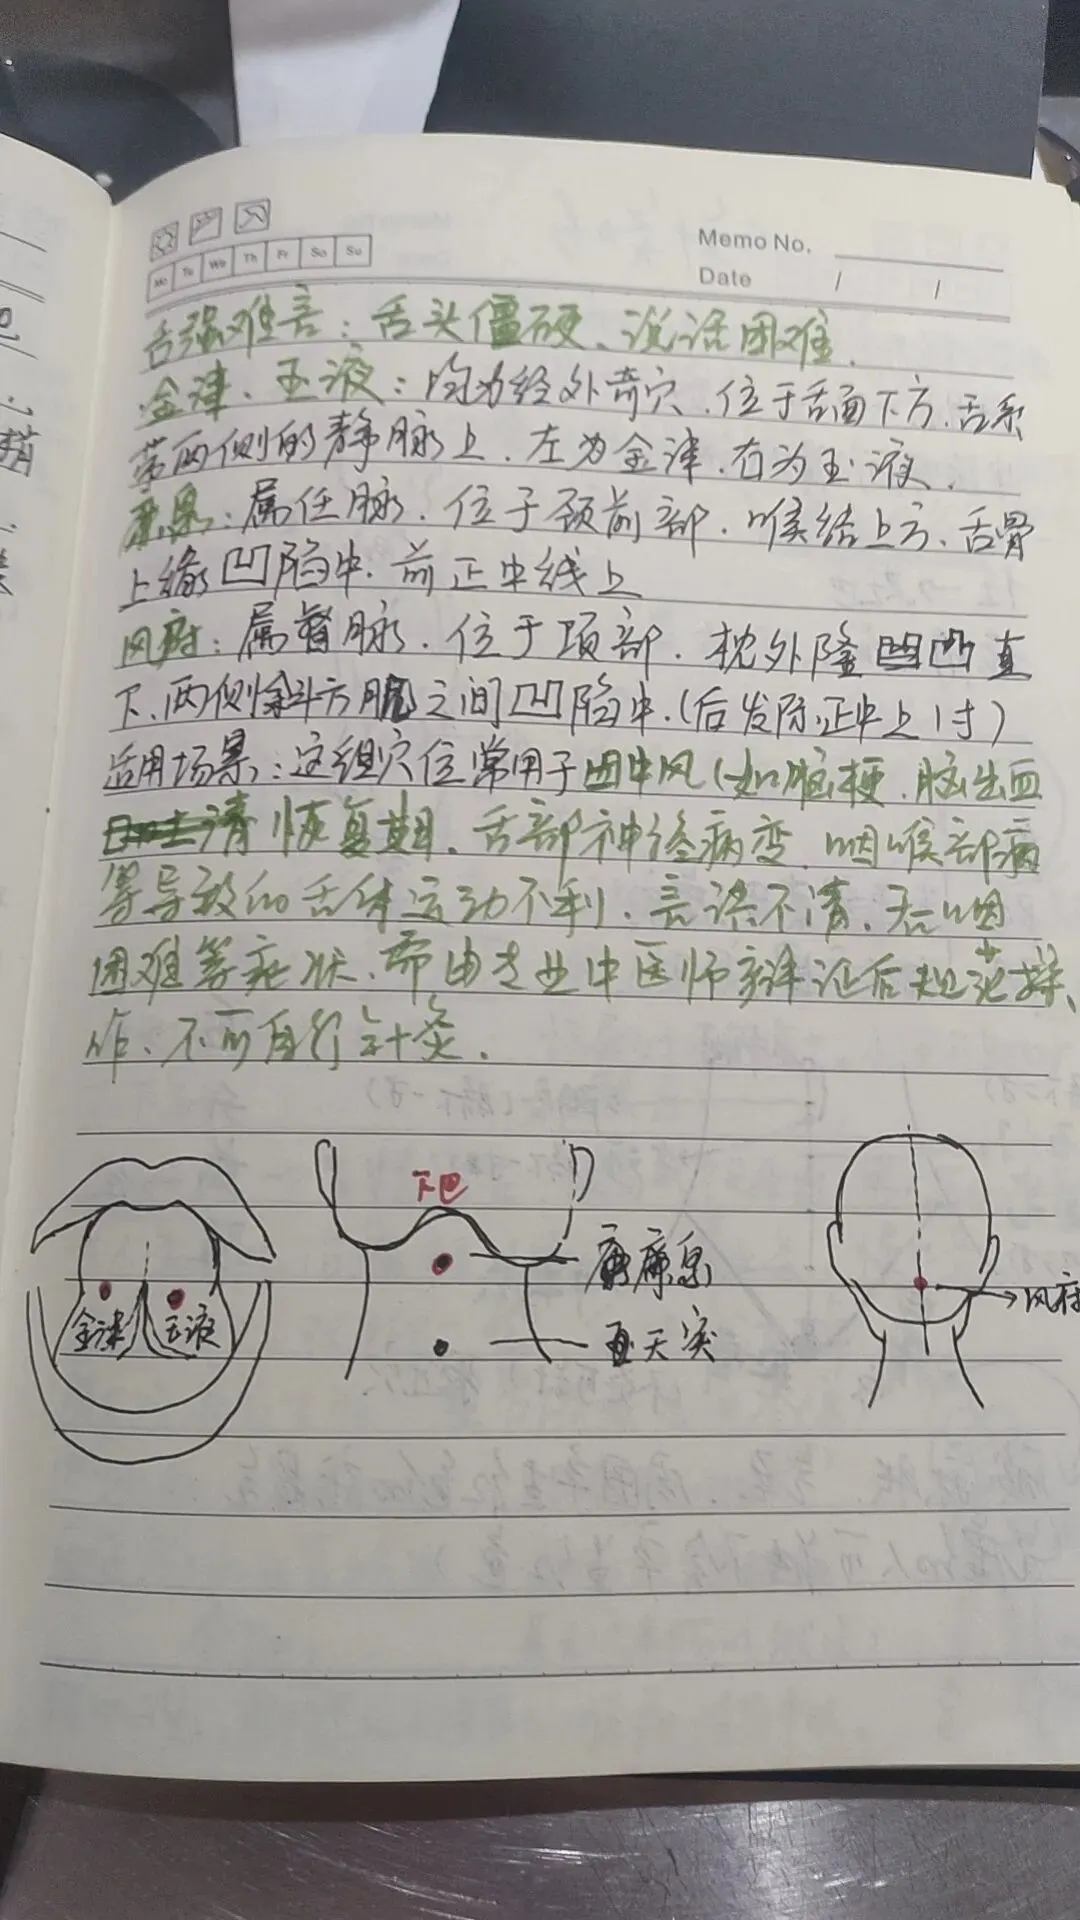 Memo No.
Mo Tu We Th Fr Sa Su
Date / /
舌强难言：舌头僵硬、说话困难.
金津、玉液：均为经外奇穴.位于舌面下方.舌系
带两侧的静脉上.左为金津.右为玉液.
廉泉：属任脉.位于颈前部.喉结上方、舌骨
上缘凹陷中.前正中线上
风府：属督脉.位于项部.枕外隆凸直
下、两侧斜方肌之间凹陷中.(后发际正中上1寸)
适用场景：这组穴位常用于因中风(如脑梗.脑出血
清恢复期、舌部神经病变.咽喉部病
等导致的舌体运动不利、言语不清、吞咽
困难等症状、需由专业中医师辩证后规范操、
作、不可自行针灸.
下巴
廉泉
天突
金津 玉液
风府